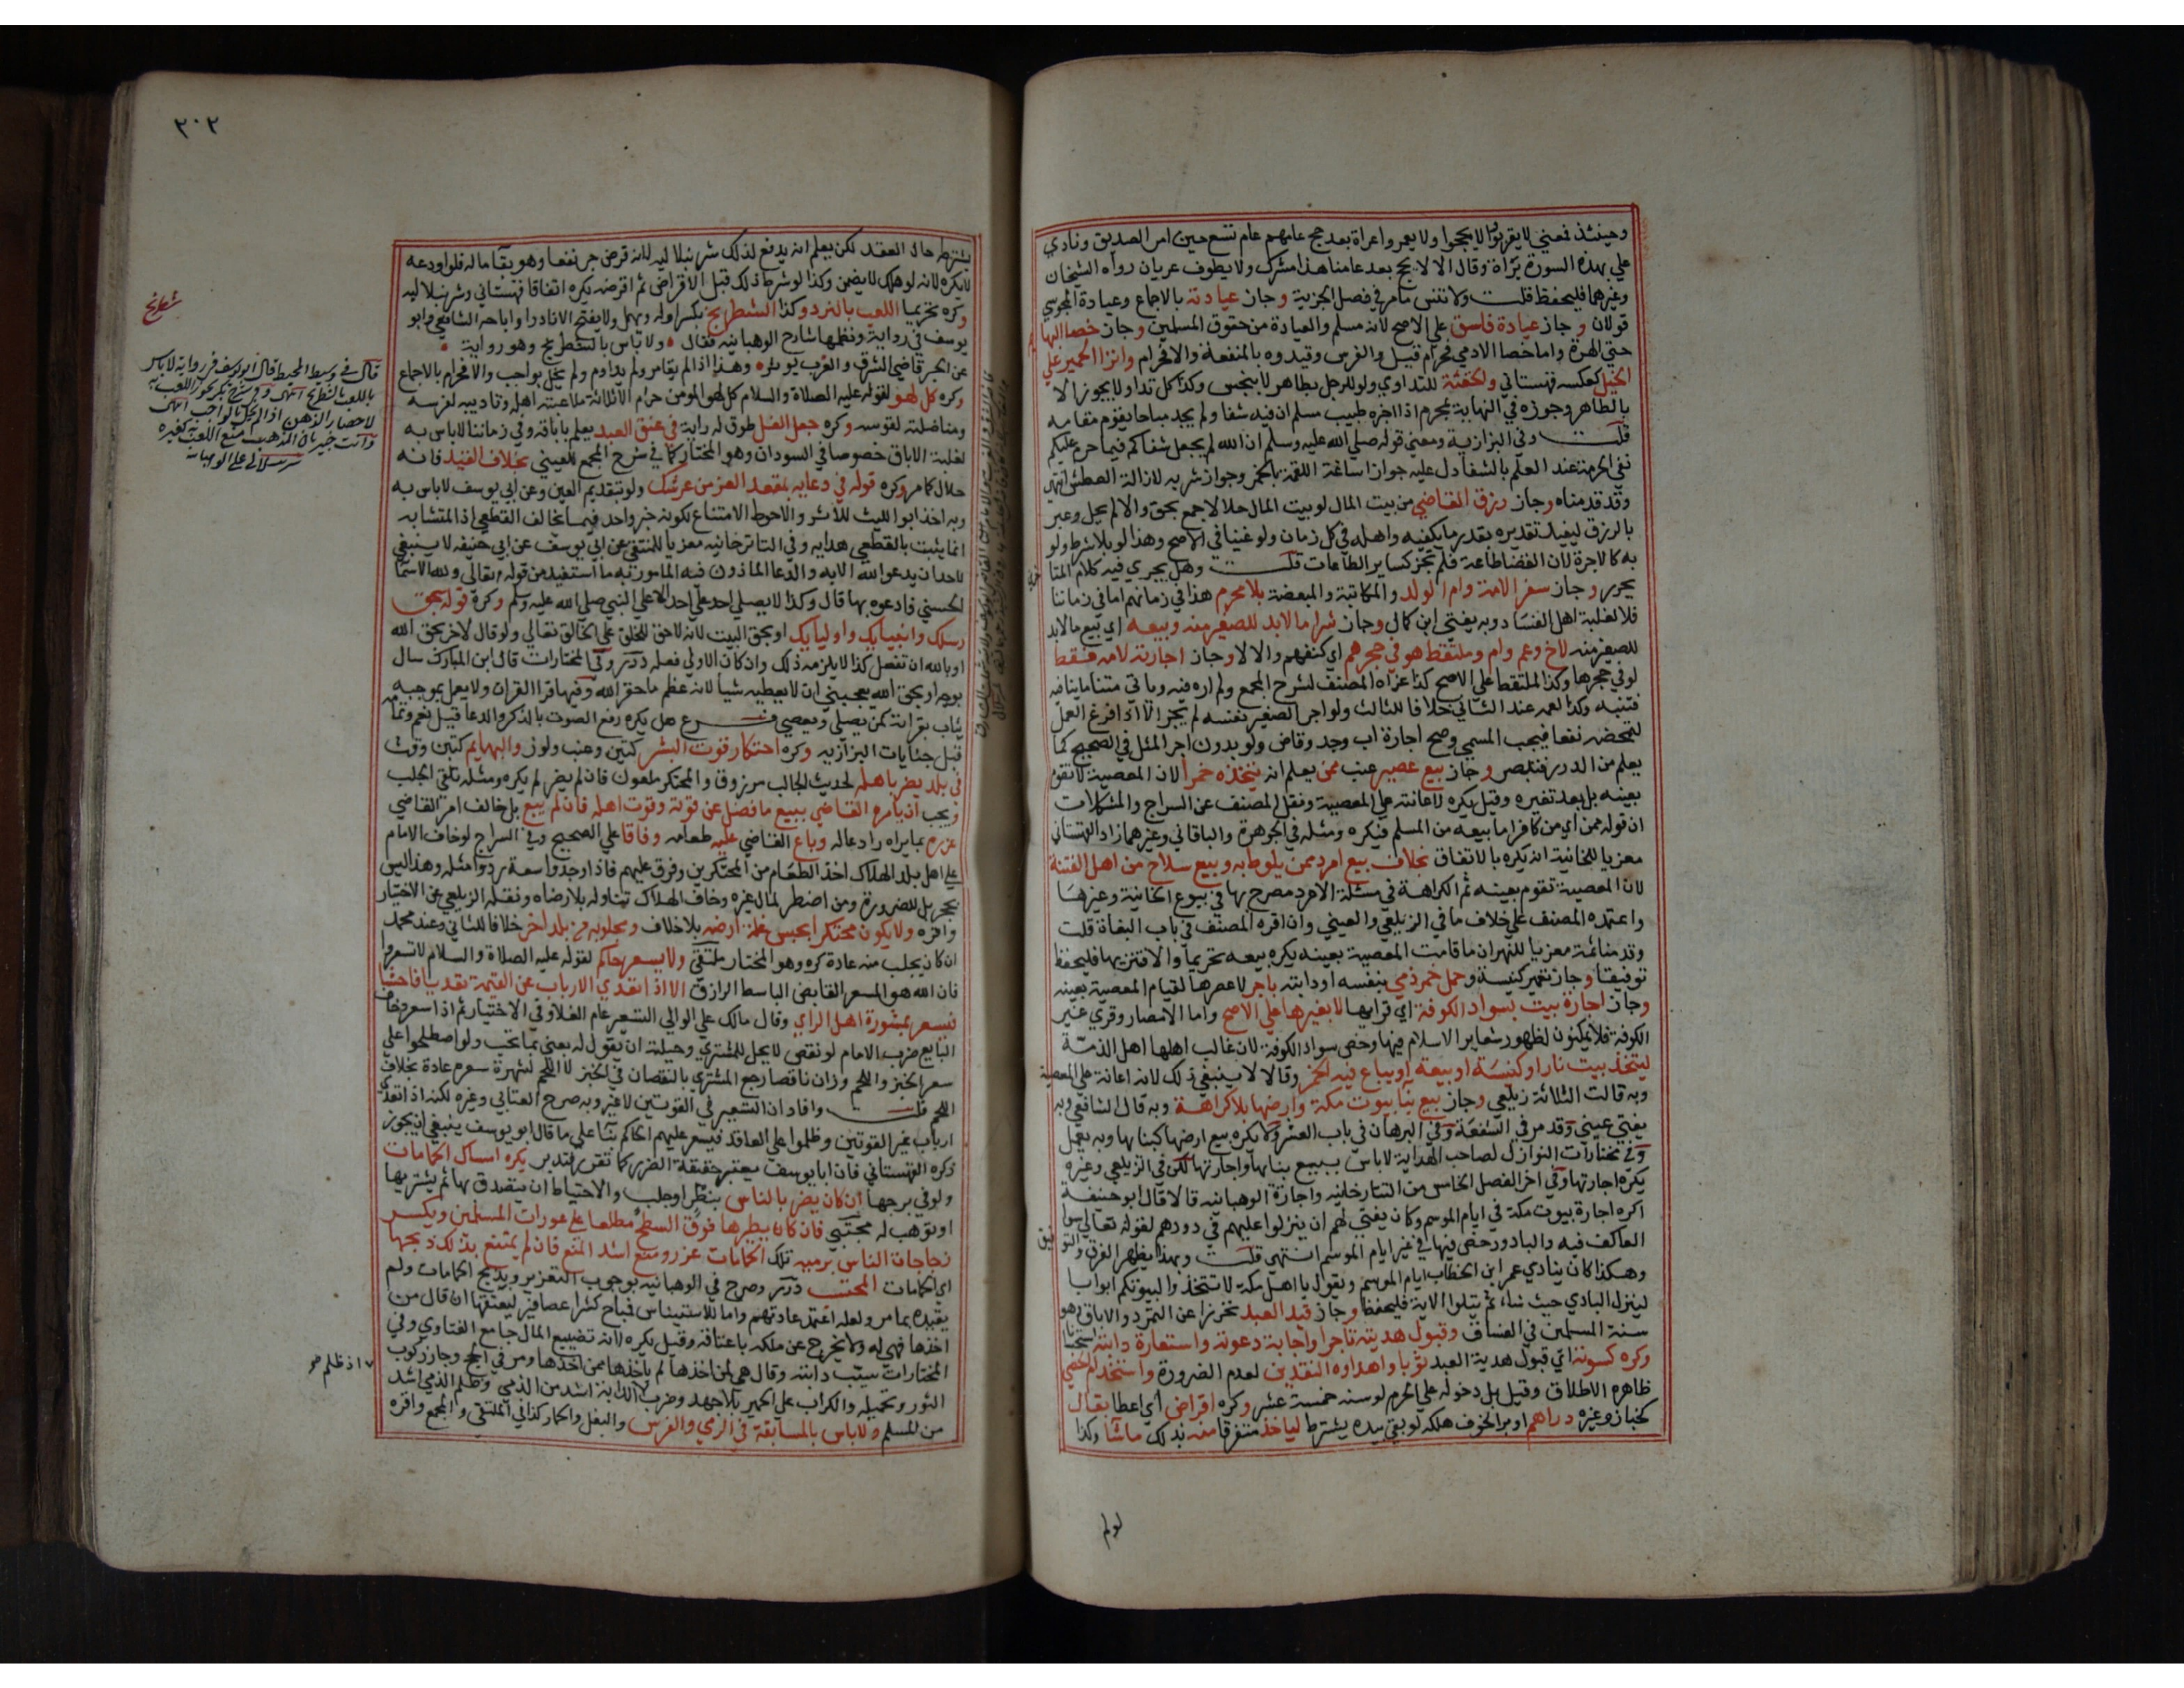 وحينئذ فمعني لا يقربوا لا يحجوا ولا يعمروا عراة بعد حج عامهم عام تسع حين امر الصديق ونادي
علي بهذه السورة براة وقال الا لا يحج بعد عامنا هذا مشرك ولا يطوف عريان رواه الشيخان
وغيرهما فليحفظ قلت ولا تنس ما مر في فصل الجزية وجاز عيادته بالاجماع وعيادة المجوسي
قولان وجاز عيادة فاسق علي الاصح لانه مسلم والعيادة من حقوق المسلمين وجاز خصا البهايم
حتي الهرة واما خصا الادمي فحرام قيل والفرس وقيدوه بالمنفعة والا فحرام وانزا الحمير علي
الخيل كعكسه قهستاني والحقنة للتداوي ولو للرجل بطاهر لا بنجس وكذا كل تداو لا يجوز الا
بالطاهر وجوزه في النهاية بمحرم اذا اخبره طبيب مسلم ان فيه شفا ولم يجد مباحا يقوم مقامه
قلت وفي البزازية ومعني قوله صلي الله عليه وسلم ان الله لم يجعل شفاكم فيما حرم عليكم
نفي الحرمة عند العلم بالشفا دل عليه جواز اساغة اللقمة بالخمر وجواز شربه لازالة العطش انتهي
وقد قدمناه وجاز رزق القاضي من بيت المال لو بيت المال حلالا جمع بحق والا لم يحل وعبر
بالرزق ليفيد تقديره بقدر ما يكفيه واهله في كل زمان ولو غنيا في الاصح وهذا لو بلا شرط ولو
به كالاجرة لان القضا طاعة فلم تجز كساير الطاعات قلت وهل يجري فيه كلام المتا
يحرر وجاز سفر الامة وام الولد والمكاتبة والمبعضة بلا محرم هذا في زمانهم اما في زماننا
فلا لغلبة اهل الفساد وبه يفتي ابن كمال وجاز شرا ما لا بد للصغير منه وبيعه اي بيع ما لا بد
للصغير منه لاخ وعم وام وملتقط هو في حجرهم اي كنفهم والا لا وجاز اجارته لامه فقط
لو في حجرها وكذا الملتقط علي الاصح كذا عزاه المصنف لشرح المجمع ولم اره فيه وياتي متنا ما ينافيه
فتنبه وكذا لعمه عند الثاني خلافا للثالث ولو اجر الصغير نفسه لم يجز الا اذا فرغ العمل
لتمحضه نفعا فيجب المسمي وصح اجارة اب وجد وقاض ولو بدون اجر المثل في الصحيح كما
يعلم من الدرر فتبصر وجاز بيع عصير عنب ممن يعلم انه يتخذه خمرا لان المعصية لا تقوم
بعينه بل بعد تغيره وقيل يكره لاعانته علي المعصية ونقل المصنف عن السراج والمشكلات
ان قوله ممن اي من كافر اما بيعه من المسلم فيكره ومثله في الجوهرة والباقاني وغيرهما زاد القهستاني
معزيا للخانية انه يكره بالاتفاق بخلاف بيع امرد ممن يلوط به وبيع سلاح من اهل الفتنة
لان المعصية تقوم بعينه ثم الكراهة في مسئلة الامرد مصرح بها في بيوع الخانية وغيرها
واعتمده المصنف علي خلاف ما في الزيلعي والعيني وان اقره المصنف في باب البغاة قلت
وقدمنا ثمة معزيا للنهر ان ما قامت المعصية بعينه يكره بيعه تحريما والا فتنزيها فليحفظ
توفيقا وجاز تعمير كنيسة وحمل خمر ذمي بنفسه او دابته باجر لا عصرها لقيام المعصية بعينه
وجاز اجارة بيت بسواد الكوفة اي قراها لا بغيرها علي الاصح واما الامصار وقري غير
الكوفة فلا يمكنون لظهور شعاير الاسلام فيها وخص سواد الكوفة لان غالب اهلها اهل الذمة
ليتخذ بيت نار او كنسة او بيعة او يباع فيه الخمر وقالا لا ينبغي ذلك لانه اعانة علي المعصية
وبه قالت الثلاثة زيلعي وجاز بيع بنا بيوت مكة وارضها بلا كراهة وبه قال الشافعي وبه
يفتي عيني وقد مر في الشفعة وفي البرهان في باب العشر ولا يكره بيع ارضها كبنايها وبه يعمل
وفي مختارات النوازل لصاحب الهداية لا باس ببيع بنايها واجارتها لكن في الزيلعي وغيره
يكره اجارتها وفي اخر الفصل الخامس من التتارخانيه واجارة الوهبانيه قالا قال ابو حنيفة
اكره اجارة بيوت مكة في ايام الموسم وكان يفتي لهم ان ينزلوا عليهم في دورهم لقوله تعالي سوا
العاكف فيه والباد ورخص فيها في غير ايام الموسم انتهي قلت وبهذا يظهر الفرق والتو
فيق
وهكذا كان ينادي عمر ابن الخطاب ايام الموسم ويقول يا اهل مكة لا تتخذوا لبيوتكم ابوابا
لينزل البادي حيث شاء ثم يتلوا الاية فليحفظ وجاز قيد العبد تحرزا عن التمرد والاباق وهو
سنة المسلمين في الفساق وقبول هديته تاجرا واجابة دعوته واستعارة دابته استحسانا
وكره كسوته اي قبول هدية العبد ثوبا واهداوه النقدين لعدم الضرورة واستخدام الخصي
ظاهره الاطلاق وقيل بل دخوله علي الحرم لو سنه خمسة عشر وكره اقراض اي اعطا بقال
كخباز وغيره دراهم او برا لخوف هلكه لو بقي بيده يشترط لياخذ متفرقا منه بذلك ما شا وكذا
لو لم
٢٠٢
يشترط حال العقد لكن يعلم انه يدفع لذلك شرنبلاليه لانه قرض جر نفعا وهو بقا ماله فلو اودعه
لا يكره لانه لو هلك لا يضمن وكذا لو شرط ذلك قبل الاقراض ثم اقرضه يكره اتفاقا قهستاني وشرنبلاليه
وكره تحريما اللعب بالنرد وكذا الشطرنج بكسر اوله ويهمل ولا يفتح الا نادرا واباحه الشافعي وابو
يوسف في رواية ونظمها شارح الوهبانيه فقال ولا باس بالشطرنج وهو رواية
عن الحبر قاضي الشرق والغرب يوثره وهذا اذا لم يقامر ولم يداوم ولم يخل بواجب والا فحرام بالاجماع
وكره كل لهو لقوله عليه الصلاة والسلام كل لهو المومن حرام الا ثلاثة ملاعبته اهله وتاديبه لفرسه
ومناضلته لقوسه وكره جعل الغل طوق له راية في عنق العبد يعلم باباقه وفي زماننا لا باس به
لغلبة الاباق خصوصا في السودان وهو المختار كما في شرح المجمع للعيني بخلاف القيد فانه
حلال كما مر وكره قوله في دعايه بمقعد العز من عرشك ولو بتقديم العين وعن ابي يوسف لا باس به
وبه اخذ ابو الليث للاثر والاحوط الامتناع لكونه خبر واحد فيما يخالف القطعي اذ المتشابه
انما يثبت بالقطعي هدايه وفي التاترخانيه معزيا للمنتقي عن ابي يوسف عن ابي حنيفه لا ينبغي
لاحد ان يدعو الله الا به والدعا الماذون فيه المامور به ما استفيد من قوله تعالي ولله الاسما
الحسني فادعوه بها قال وكذا لا يصلي احد علي احد الا علي النبي صلي الله عليه وسلم وكره قوله بحق
رسلك وانبيايك واوليايك او بحق البيت لانه لا حق للخلق علي الخالق تعالي ولو قال لاخر بحق الله
او بالله ان تفعل كذا لا يلزمه ذلك وان كان الاولي فعله درر وفي المختارات قال ابن المبارك سال
بوجه او بحق الله يعجبني ان لا يعطيه شيا لانه عظم ما حقر الله وفيها قرا القران ولا يعمل بموجبه
يثاب بقراته كمن يصلي ويعصي فرع هل يكره رفع الصوت بالذكر والدعا قيل نعم وتمامه
قبيل جنايات البزازيه وكره احتكار قوت البشر كتين وعنب ولوز والبهايم كتبن وقت
في بلد يضر باهله لحديث الجالب مرزوق والمحتكر ملعون فان لم يضر لم يكره ومثله تلقي الجلب
ويجب ان يامره القاضي ببيع ما فضل عن قوته وقوت اهله فان لم يبع بل خالف امر القاضي
عزره بما يراه رادعا له وباع القاضي عليه طعامه وفاقا علي الصحيح وفي السراج لو خاف الامام
علي اهل بلد الهلاك اخذ الطعام من المحتكرين وفرق عليهم فاذا وجدوا سعة ردوا مثله وهذا ليس
بحجر بل للضرورة ومن اضطر لمال غيره وخاف الهلاك تناوله بلا رضاه ونقله الزيلعي عن الاختيار
واقره ولا يكون محتكرا بحبس غلة ارضه بلا خلاف ومجلوبه من بلد اخر خلافا للثاني وعند محمد
ان كان يجلب منه عادة كره وهو المختار ملتقي ولا يسعر حاكم لقوله عليه الصلاة والسلام لا تسعروا
فان الله هو المسعر القابض الباسط الرازق الا اذا تعدي الارباب عن القيمة تعديا فاحشا
فيسعر بمشورة اهل الراي وقال مالك علي الوالي التسعير عام الغلا وفي الاختيار ثم اذا سعر وخاف
البايع ضرب الامام لو نقص لا يحل للمشتري وحيلته ان يقول له بعني بما تحب ولو اصطلحوا علي
سعر الخبز واللحم ووزن ناقصا رجع المشتري بالنقصان في الخبز لا اللحم لشهرة سعره عادة بخلاف
اللحم قلت وافاد ان التسعير في القوتين لا غير وبه صرح العتابي وغيره لكنه اذا تعدي
ارباب غير القوتين وظلموا علي العاقد فيسعر عليهم الحاكم بنا علي ما قال ابو يوسف ينبغي ان يجوز
ذكره القهستاني فان ابا يوسف يعتبر حقيقة الضرر كما تقرر فتدبر يكره امساك الحمامات
ولو في برجها ان كان يضر بالناس بنظر او جلب والاحتياط ان يتصدق بها ثم يشتريها
او توهب له مجتبي فان كان يطيرها فوق السطح مطلعا علي عورات المسلمين ويكسر
زجاجات الناس برميه تلك الحمامات عزر ومنع اشد المنع فان لم يمتنع بذلك ذبحها
اي الحمامات المحتسب درر وصرح في الوهبانيه بوجوب التعزير وبذبح الحمامات ولم
يقيده بما مر ولعله اعتمد عادتهم واما للاستيناس فمباح كشرا عصافير ليعتقها ان قال من
اخذها فهي له ولا تخرج عن ملكه باعتاقه وقيل يكره لانه تضييع المال جامع الفتاوي وفي
المختارات سيب دابته وقال هي لمن اخذها لم ياخذها ممن اخذها ومر في الحج وجاز ركوب
الثور وتحميله والكراب علي الحمير بلا جهد وضرب الدابة اشد من الذمي وظلم الذمي اشد
من المسلم ولا باس بالمسابقة في الرمي والفرس والبغل والحمار كذا في الملتقي والمجمع واقره
شطرنج
قال في وسيط المحيط قال ابو يوسف في رواية لا باس
باللعب بالشطرنج انتهي وفي شرح يجوز اللعب به
لاحضار الذهن اذا لم يخل بالواجب انتهي
وانت خبير بان المذهب منع اللعب به كغيره
شرنبلالي علي الوهبانيه
اذ ظلم صح